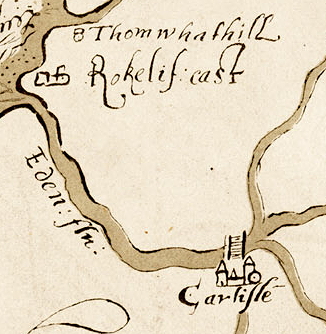 Thomwhathill
Rokelif: cast
Eden: flu:
Carlisle